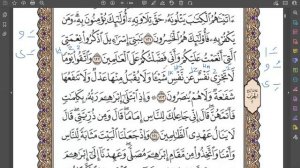 ءَاتَيْنَٰهُمُ ٱلْكِتَٰبَ يَتْلُونَهُۥ حَقَّ تِلَاوَتِهِۦٓ أُو۟لَٰٓئِكَ يُؤْمِنُونَ بِهِۦ وَمَن
يَكْفُرْ بِهِۦ فَأُو۟لَٰٓئِكَ هُمُ ٱلْخَٰسِرُونَ ١٢١ يَٰبَنِىٓ إِسْرَٰٓءِيلَ ٱذْكُرُوا۟ نِعْمَتِىَ
ٱلَّتِىٓ أَنْعَمْتُ عَلَيْكُمْ وَأَنِّى فَضَّلْتُكُمْ عَلَى ٱلْعَٰلَمِينَ ١٢٢ وَٱتَّقُوا۟ يَوْمًا
لَّا تَجْزِى نَفْسٌ عَن نَّفْسٍ شَيْـًٔا وَلَا يُقْبَلُ مِنْهَا عَدْلٌ وَلَا تَنفَعُهَا
شَفَٰعَةٌ وَلَا هُمْ يُنصَرُونَ ١٢٣ وَإِذِ ٱبْتَلَىٰٓ إِبْرَٰهِۦمَ رَبُّهُۥ بِكَلِمَٰتٍ
فَأَتَمَّهُنَّ قَالَ إِنِّى جَاعِلُكَ لِلنَّاسِ إِمَامًا قَالَ وَمِن ذُرِّيَّتِى قَالَ
لَا يَنَالُ عَهْدِى ٱلظَّٰلِمِينَ ١٢٤ وَإِذْ جَعَلْنَا ٱلْبَيْتَ مَثَابَةً لِّلنَّاسِ
وَأَمْنًا وَٱتَّخِذُوا۟ مِن مَّقَامِ إِبْرَٰهِۦمَ مُصَلًّى وَعَهِدْنَآ إِلَىٰٓ إِبْرَٰهِۦمَ